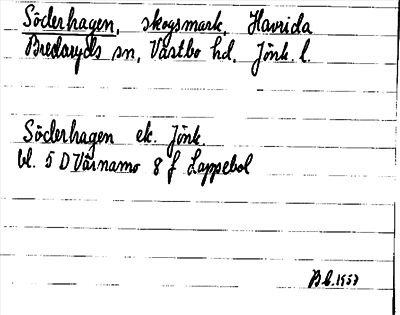 Söderhagen, skogsmark, Havrida
Bredaryds sn, Västbo hd, Jönk. l.
Söderhagen ek. Jönk.
bl. 5 D Värnamo 8 f Lappebol
B.C. 1957